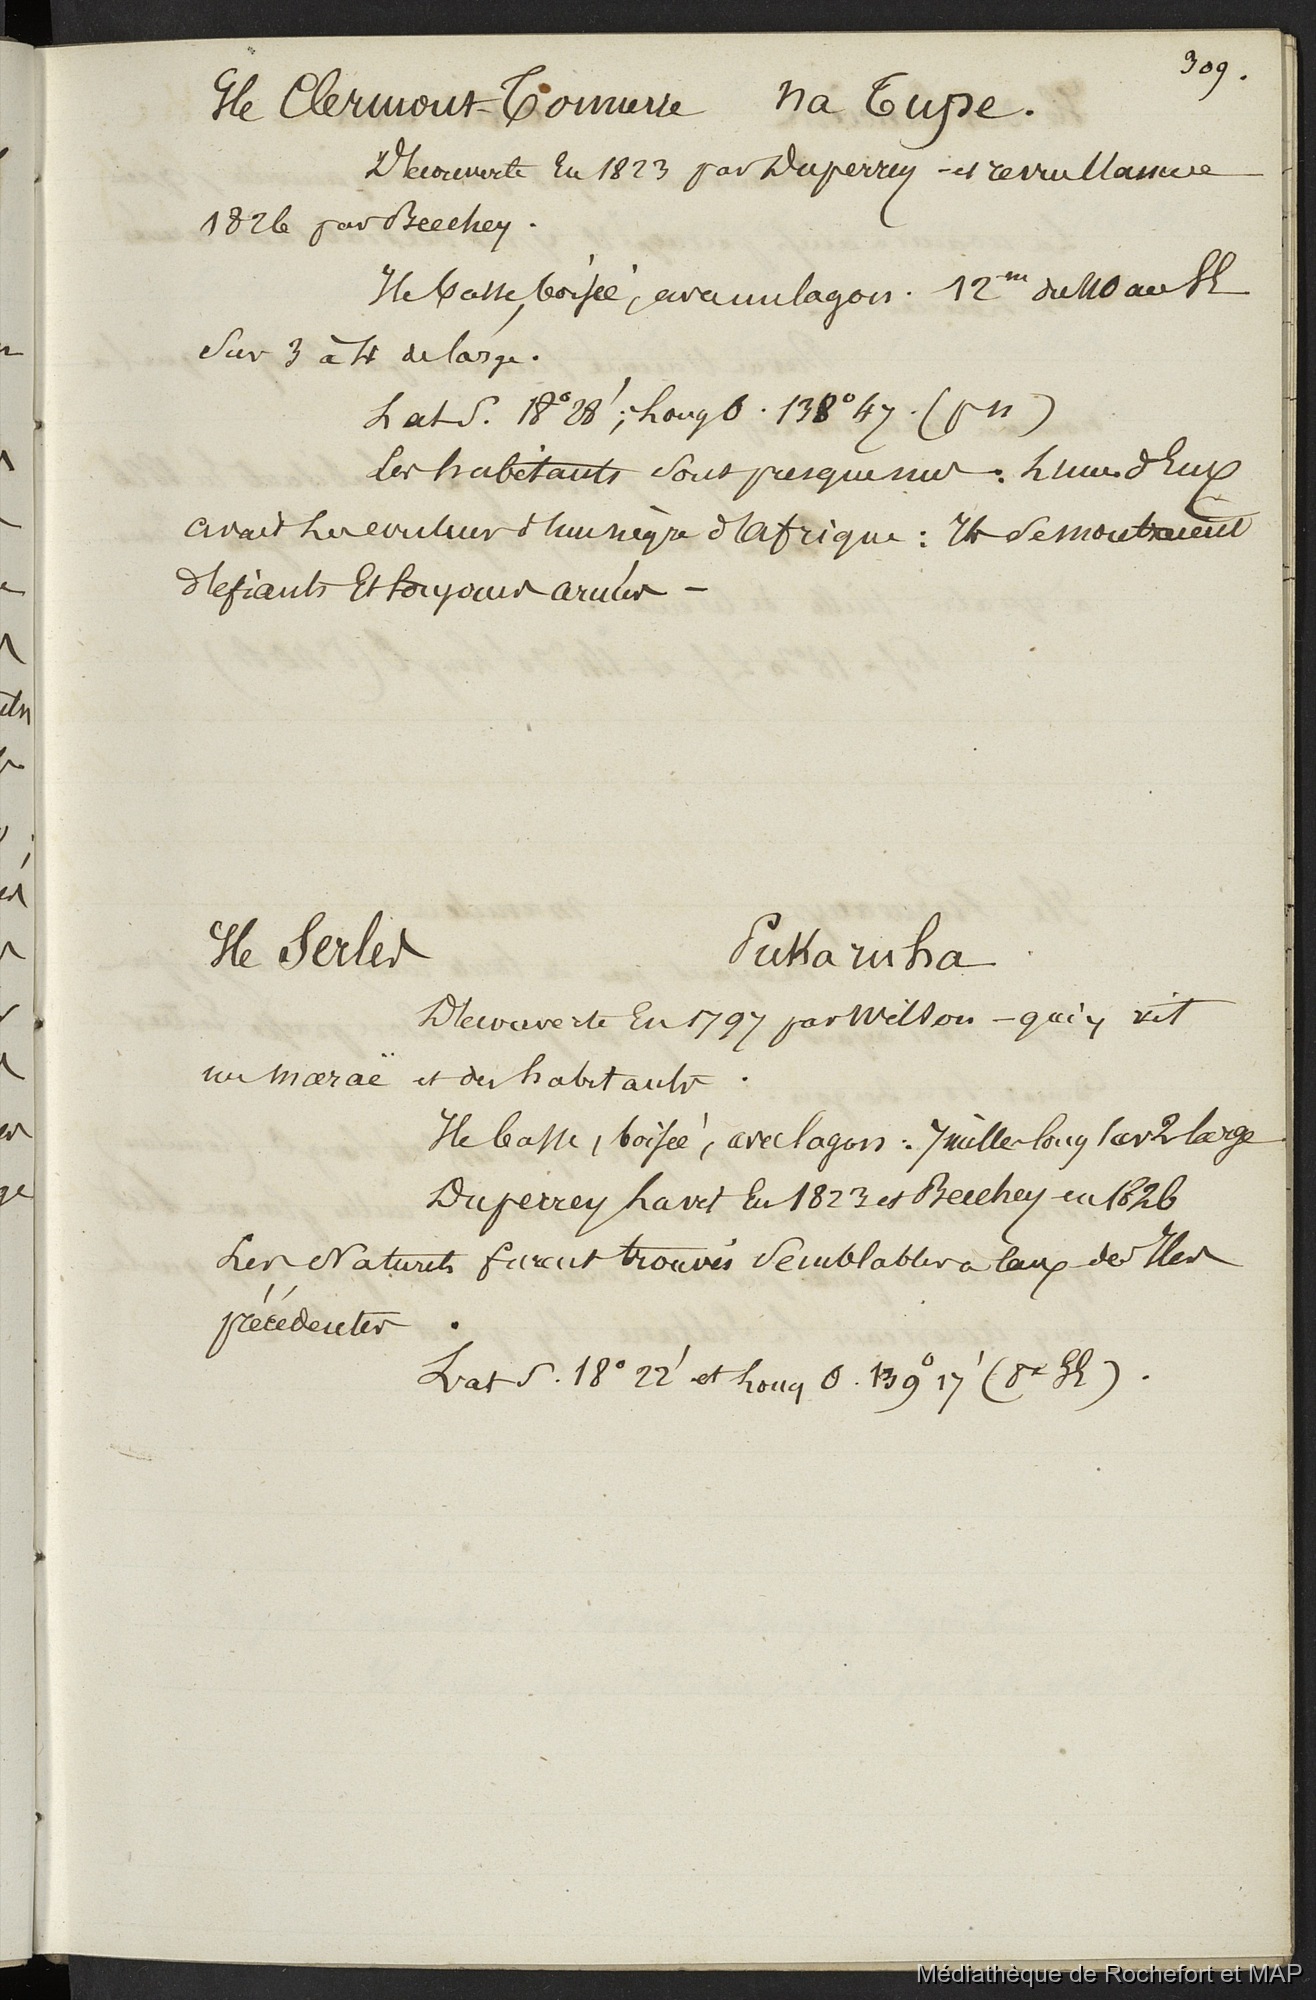 309.
Ile Clermont-Tonnerre Na Tupe.
Découverte En 1823 par Duperrey - et revue l'année
1826 par Beechey.
Ile basse, boisée, avec un lagon. 12 m du NO au SE
Sur 3 à 4 de large.
Lat S. 18° 28'; Long O. 138° 47. (p N)
Les habitants sont presque nus : L'un d'Eux
avait la couleur d'un nègre d'Afrique : Ils se montraient
défiants Et toujours armés -
Ile Serles Pukaruha
Découverte En 1797 par Wilson - qui y vit
un maraë et des habitants.
Ile basse, boisée, avec lagon : 7 milles long sur 2 large
Duperrey la vit En 1823 et Beechey en 1826
Les Naturels furent trouvés semblables a Ceux des Iles
précédentes.
Lat S. 18° 22' et Long O. 139° 17' (SE)
Médiathèque de Rochefort et MAP